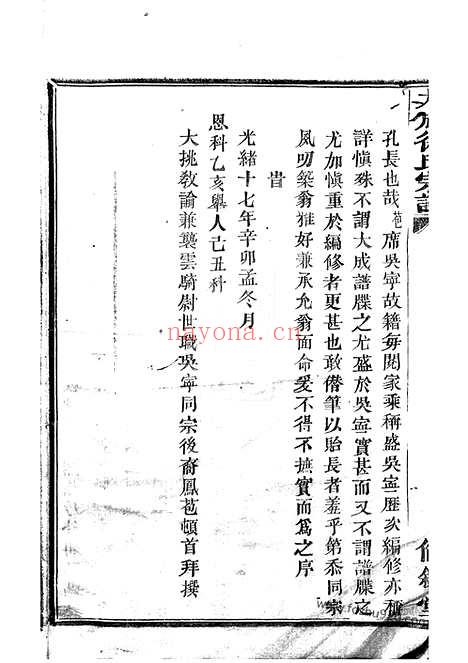 孔長也哉苞席吳寧故籍每閱家乘稱盛吳寧歷次編修亦稱
詳愼殊不謂大成譜牒之尤盛於吳寧實甚而又不謂譜牒之
尤加愼重於編修者更甚也敢僭筆以貽長者羞乎第忝同宗
夙叨築翁雅好兼承允翁面命爰不得不摭實而爲之序
旹
光緒十七年辛卯孟冬月
恩科乙亥舉人己丑科
大挑教諭兼襲雲騎尉世職吳寧同宗後裔鳳苞頓首拜撰
nayona.cn